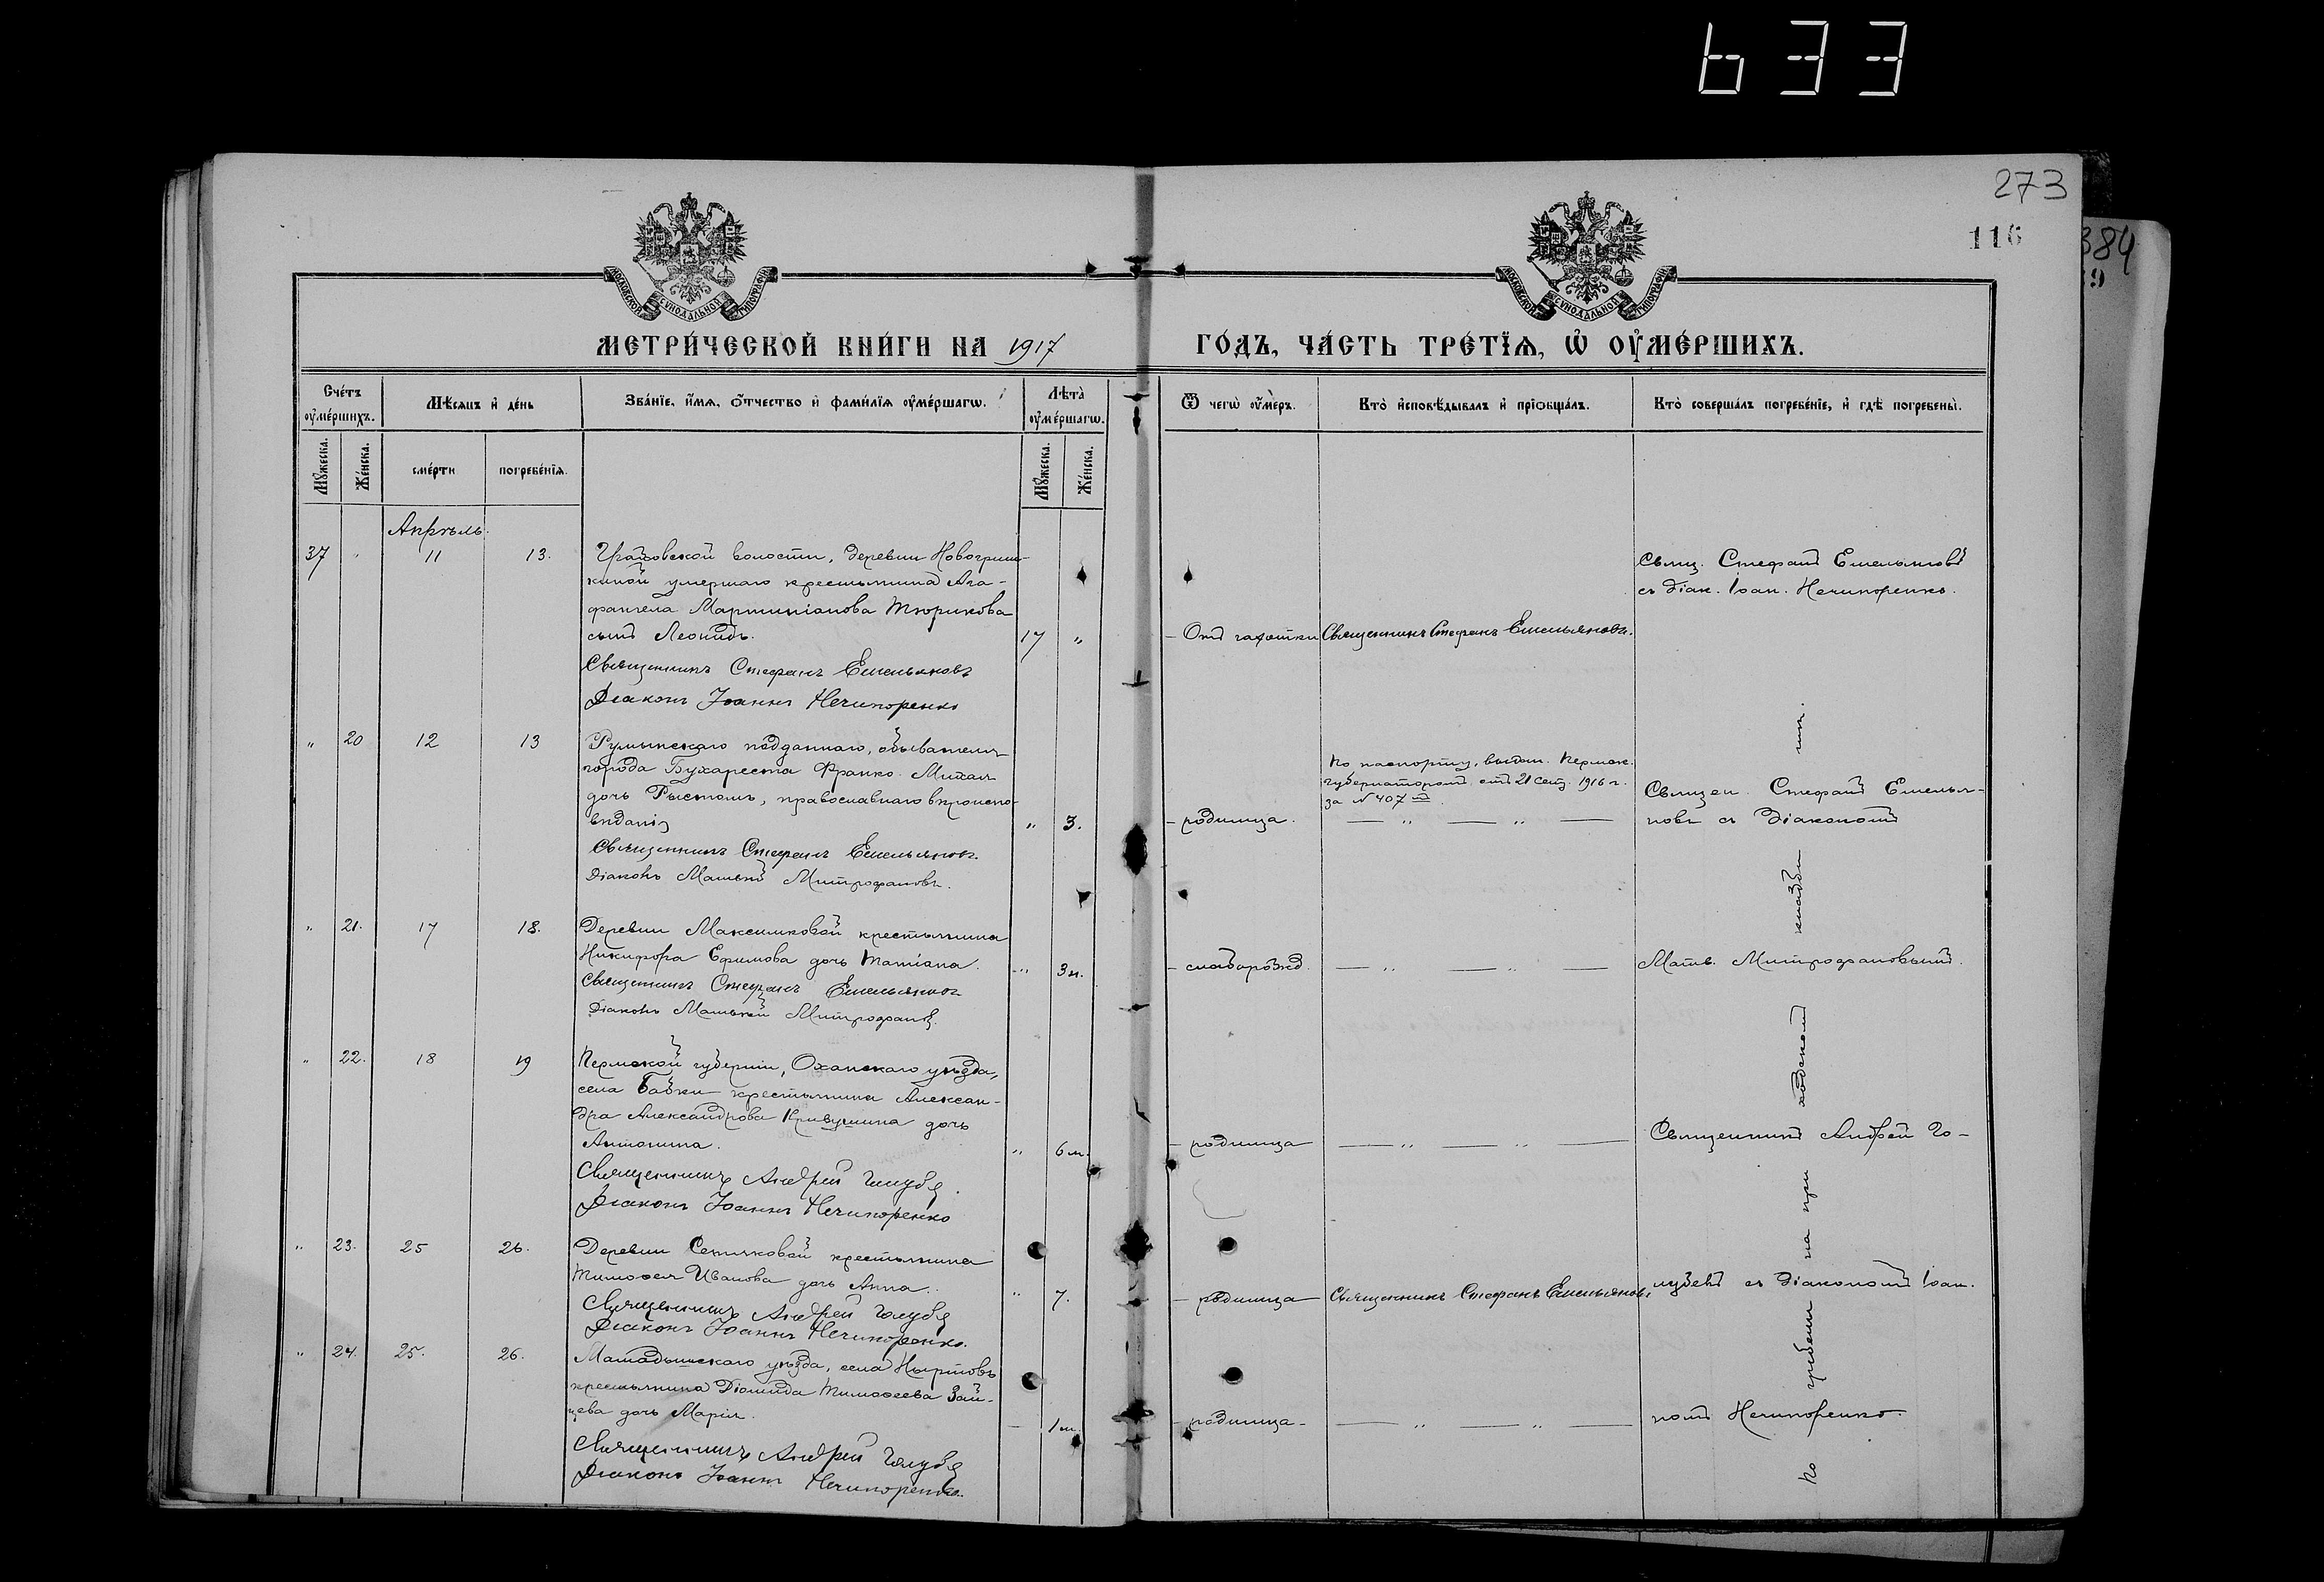 633
273
116
384
МОСКОВСКОЙ СѴНОДАЛЬНОЙ ТИПОГРАФІИ
МОСКОВСКОЙ СѴНОДАЛЬНОЙ ТИПОГРАФІИ
МЕТРИ́ЧЕСКОЙ КНИ́ГИ НА 1917 ГО́ДЪ, ЧА́СТЬ ТРЕ́ТЇѦ, Ѡ҆ ОУ҆МЕ́РШИХЪ.
Сче́тъ оу҆ме́ршихъ.
Мѣ́сѧцъ и҆ де́нь
Зва́нїе, и҆́мѧ, ѻ҆́тчество и҆ фами́лїѧ оу҆ме́ршагѡ.
Лѣ́та оу҆ме́ршагѡ.
Ѿ чегѡ̀ оу҆́меръ.
Кто̀ и҆сповѣ́дывалъ и҆ прїѻбща́лъ.
Кто̀ соверша́лъ погребе́нїе, и҆ гдѣ̀ погребены̀.
Мꙋ́жеска.
Же́нска.
сме́рти
погребе́нїѧ.
Мꙋ́жеска.
Же́нска.
Апрѣль.
37 " 11 13.
волости, деревни Новогриш-
киной умершаго крестьянина Ага-
фангела Мартиніанова Тюрикова
сынъ Леонидъ. 17 "
Священникъ Стефанъ Емельяновъ
Діаконъ Іоаннъ Нечипоренко
Отъ чахотки
Священникъ Стефанъ Емельяновъ.
Свящ. Стефанъ Емельяновъ
съ діак. Іоан. Нечипоренко.
" 20 12 13
Румынскаго подданнаго, обывателя
города Бухареста Франко Михая
дочь, православнаго вѣроиспо-
вѣданія " 3.
Священникъ Стефанъ Емельяновъ.
Діаконъ Матвѣй Митрофановъ.
родимца.
По паспорту, выдан. Пермск.
губернаторомъ отъ 21 сент. 1916 г.
за № 407
— " — " —
Священ. Стефанъ Емелья-
новъ съ діакономъ
" 21. 17 18.
Деревни Максимковой крестьянина
Никифора Ефимова дочь Татіана. " 3 н.
Священникъ Стефанъ Емельяновъ
Діаконъ Матвѣй Митрофановъ.
слаборожд.
— " — " —
Матв. Митрофановымъ.
" 22. 18 19
Пермской губерніи, Оханскаго уѣзда,
села Бабки крестьянина Алексан-
дра Александрова Кривушина дочь
Антонина. " 6 м.
Священникъ Андрей Голубевъ.
Діаконъ Іоаннъ Нечипоренко
родимца
— " — " —
Священникъ Андрей Го-
" 23. 25 26.
Деревни крестьянина
Тимоѳея Иванова дочь Анна. " 7.
Священникъ Андрей Голубевъ
Діаконъ Іоаннъ Нечипоренко.
родимца
Священникъ Стефанъ Емельяновъ
лубевъ съ діакономъ Іоан.
" 24. 25. 26.
Мамадышскаго уѣзда, села Ныртовъ
крестьянина Діомида Тимоѳеева Зай-
цева дочь Марія. — 1 м.
Священникъ Андрей Голубевъ
Діаконъ Іоаннъ Нечипоренко.
родимца
— " — " —
номъ Нечипоренко.
По гребены на при ходскомъ кладби щѣ.